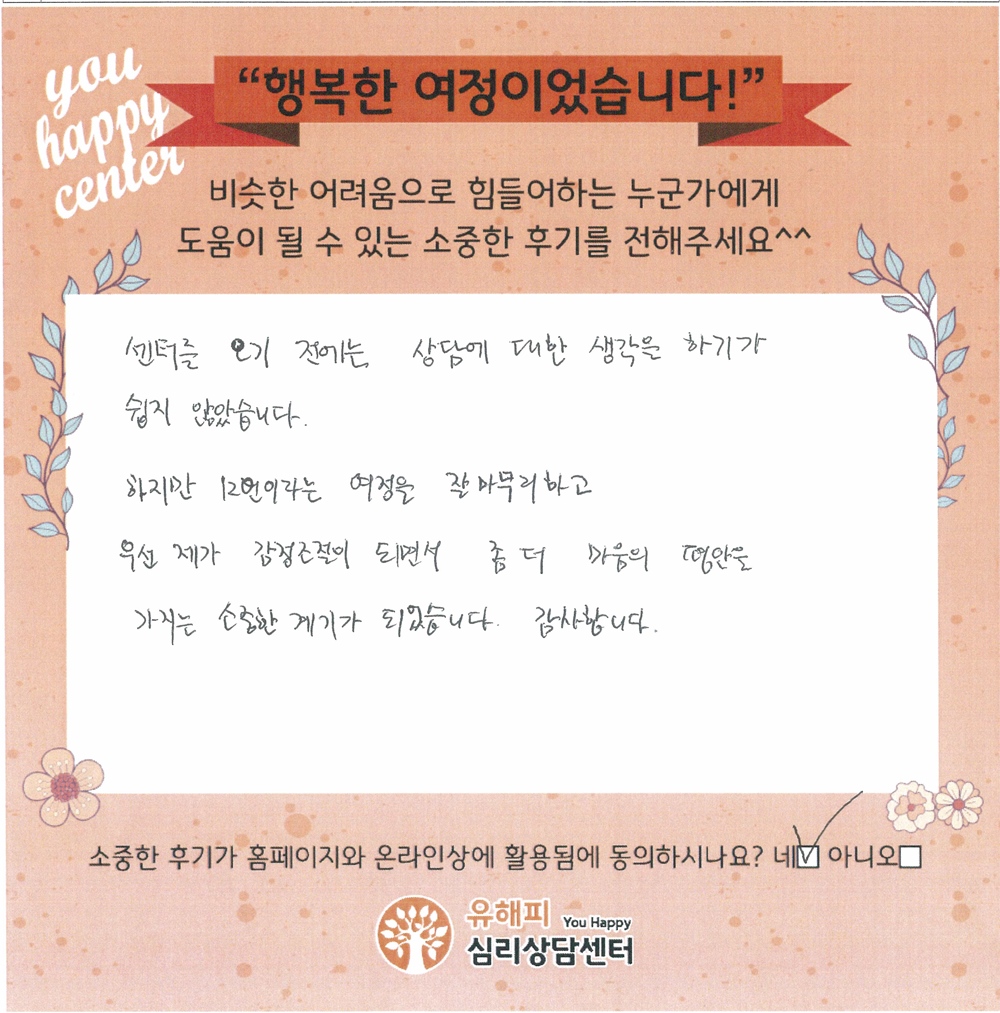 you
happy
center
“행복한 여정이었습니다!”
비슷한 어려움으로 힘들어하는 누군가에게
도움이 될 수 있는 소중한 후기를 전해주세요^^
센터를 오기 전에는 상담에 대한 생각을 하기가
쉽지 않았습니다.
하지만 12번이라는 여정을 잘 마무리하고
우선 제가 감정조절이 되면서 좀 더 마음의 평안을
가지는 소중한 계기가 되었습니다. 감사합니다.
소중한 후기가 홈페이지와 온라인상에 활용됨에 동의하시나요? 네☑ 아니오☐
유해피 You Happy
심리상담센터